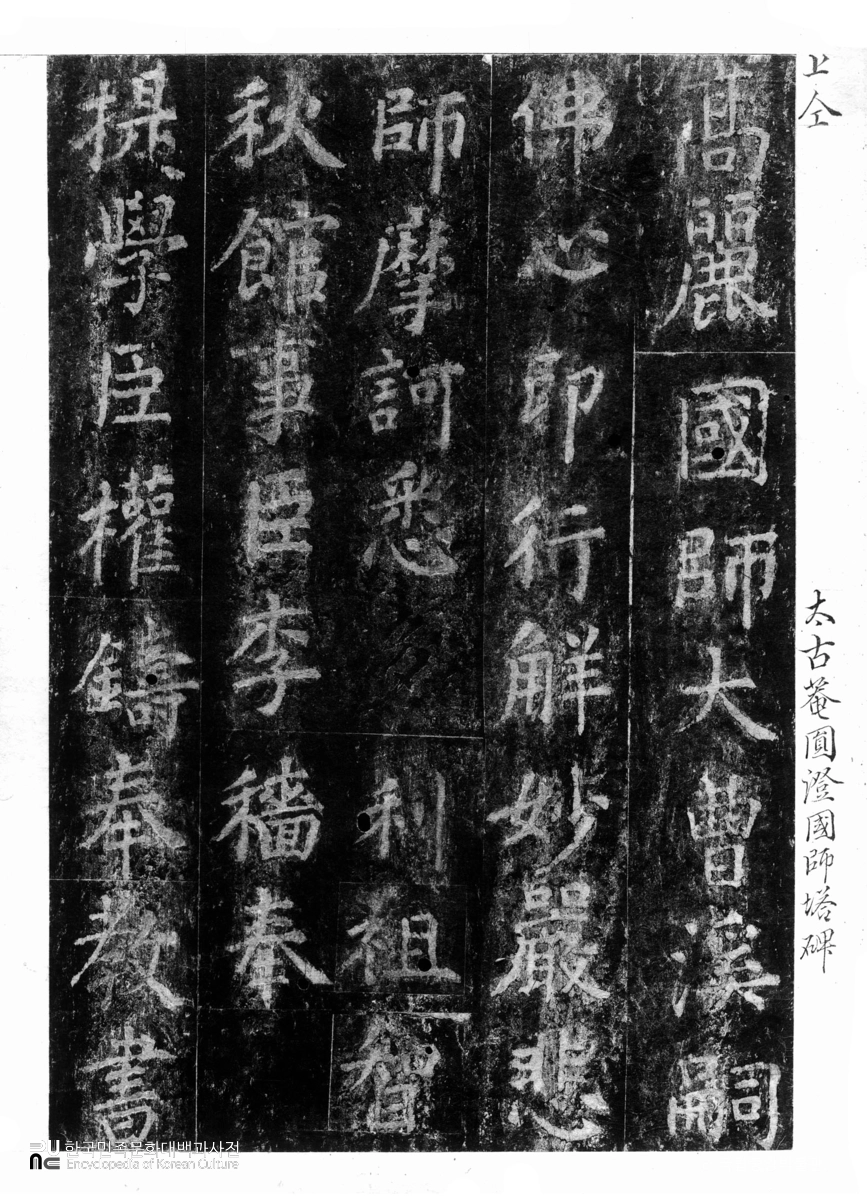 上仝
太古菴圓澄國師塔碑
高麗國師大曹溪嗣
佛心即行解妙嚴悲
師摩訶悉利祖智
秋館事臣李穡奉
提學臣權鑄奉教書
한국민족문화대백과사전
Encyclopedia of Korean Culture